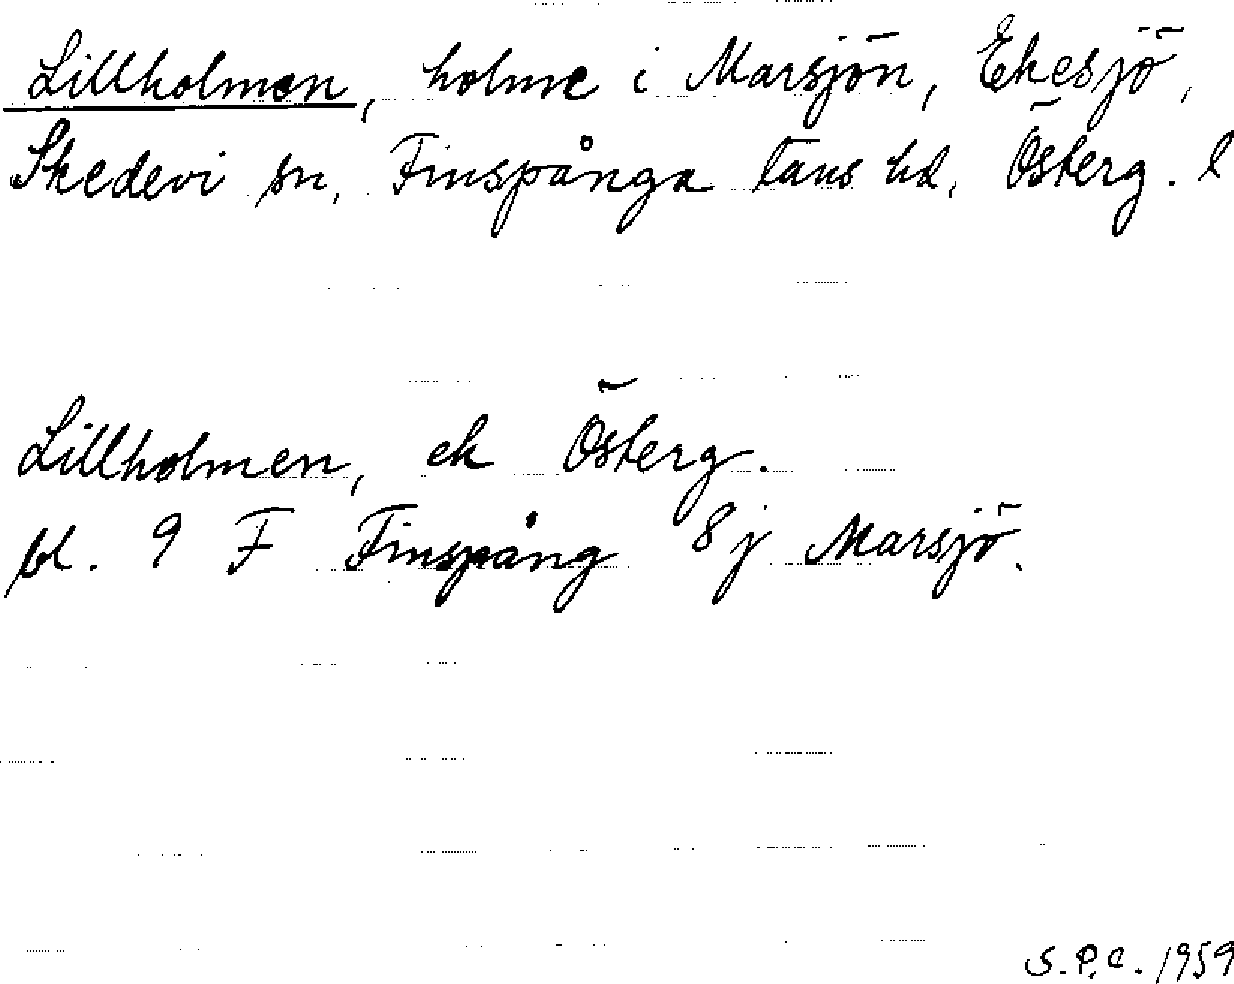 Lillholmen, holme i Marsjön, Ekesjö,
Skedevi sn, Finspånga läns hd, Österg. l
Lillholmen, ek Österg.
bl. 9 F Finspång 8 j Marsjö.
S.P.C. 1959